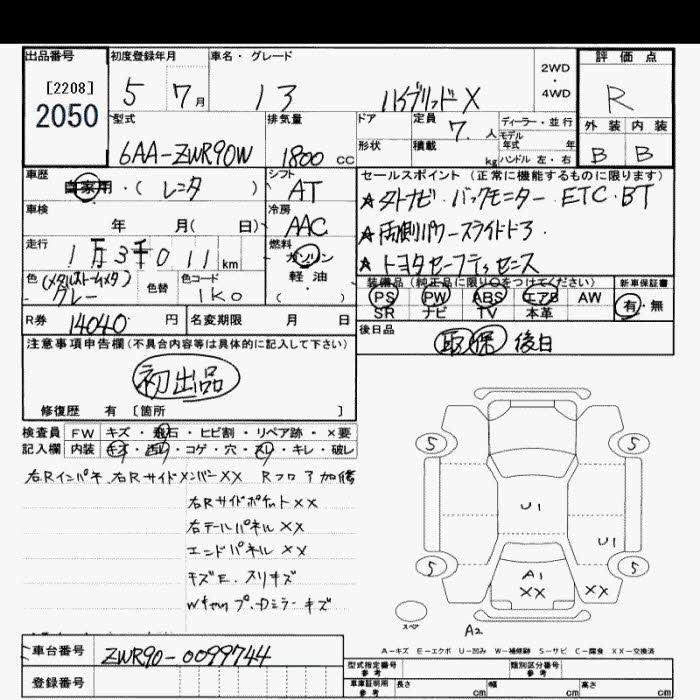 出品番号 初度登録年月 車名・グレード 2WD・4WD 評価点
[2208]
2050
5 7月 13 ハイブリッド X R
型式 排気量 ドア 定員 7.人 ディーラー・並行 外装 内装
形状 積載 kg モデル年式 年 ハンドル 左・右
6AA-ZWR90W 1800 CC B B
車歴 シフト セールスポイント (正常に機能するものに限ります)
自家用・( レンタ ) AT ★ダトナビ・バックモニター・ETC・BT
車検 冷房
年 月( 日) AAC ★両側パワースライドドア.
走行 燃料
1万3千011km ガソリン ★トヨタセーフティセンス
色 (メタルストームメタ) 色替 色コード 軽油・ 装備品 (純正品に限り○をつけてください) 新車保証書
グレー 1K0 ( ) PS PW ABS エアB AW 有・無
SR ナビ TV 本革
R券 14040 円 名変期限 月 日 後日品
注意事項申告欄(不具合内容等は具体的に記入して下さい) 取 保 後日
初出品
修復歴 有 [箇所 ]
検査員 FW キズ・飛石・ヒビ割・リペア跡・×要
記入欄 内装 キズ・汚レ・コゲ・穴・スレ・キレ・破レ
右Rインパネ.右Rサイドメンバー XX Rフロア加修
右Rサイドポケット XX
右テールパネル XX
エンドパネル XX
キズE.スリキズ
Wキャップ.Dミラーキズ
5 5
U1 U1
5 5
A1
XX XX
スペア A2
A-キズ E-エクボ U-凹み W-補修跡 S-サビ C-腐食 XX-交換済
車台番号 ZWR90-0099744
型式指定番号 参考 類別区分番号 参考
登録番号 車庫証明用 参考 長さ cm 幅 cm 高さ cm